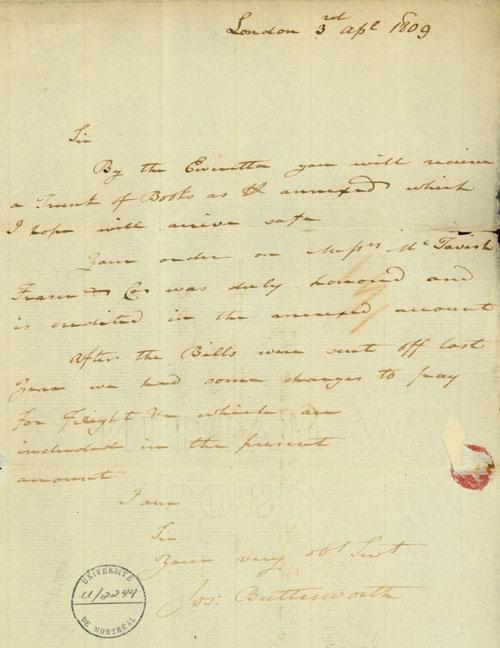 London 3rd Apl 1809
Sir
By the Eweretta you will receive
a Trunk of Books as annexed which
I hope will arrive safe
Your order on Messrs McTavish
Fraser & Co was duly honored and
is credited in the annexed account
After the Bills were sent off last
Year we had some charges to pay
for freight &c which are
included in the present
amount
I am
Sir
Your very obt Servt
Jos: Butterworth
UNIVERSITÉ
U/2244
DE MONTRÉAL